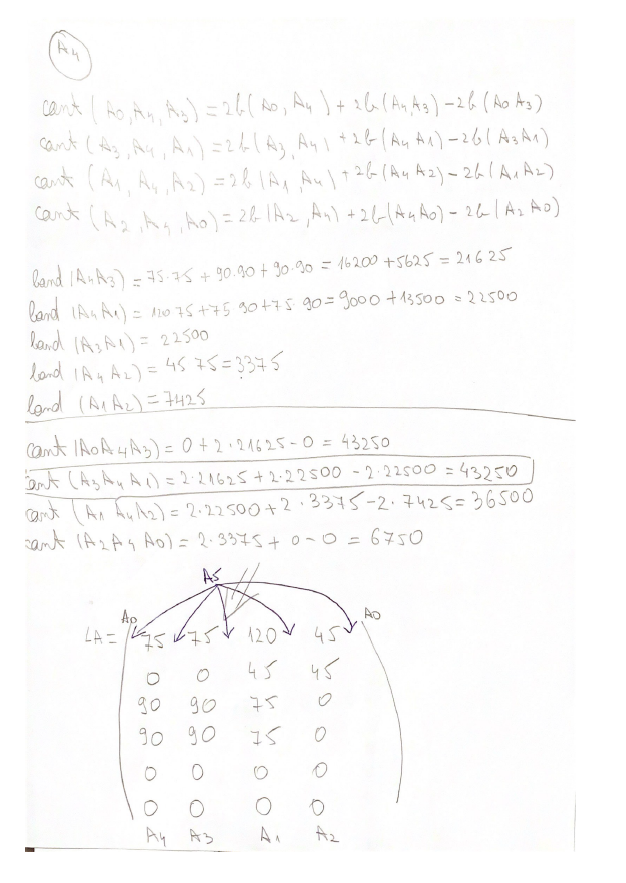 A4
cant (A0, A4, A3) = 2b(A0, A4) + 2b(A4, A3) - 2b(A0 A3)
cant (A3, A4, A1) = 2b(A3, A4) + 2b(A4 A1) - 2b(A3A1)
cant (A1, A4, A2) = 2b(A1, A4) + 2b(A4 A2) - 2b(A1A2)
cant (A2, A4, A0) = 2b(A2, A4) + 2b(A4A0) - 2b(A2 A0)
band (A4A3) = 75.75 + 90.90 + 90.90 = 16200 + 5625 = 21625
band (A4A1) = 120 75 + 75 90 + 75 90 = 9000 + 13500 = 22500
band (A3A1) = 22500
band (A4A2) = 45 75 = 3375
band (A1A2) = 7425
cant (A0A4A3) = 0 + 2.21625 - 0 = 43250
cant (A3A4A1) = 2.21625 + 2.22500 - 2.22500 = 43250
cant (A1 A4A2) = 2.22500 + 2.3375 - 2.7425 = 36500
cant (A2A4 A0) = 2.3375 + 0 - 0 = 6750
A5
A0 A0
LA = 75 75 120 45
0 0 45 45
90 90 75 0
90 90 75 0
0 0 0 0
0 0 0 0
A4 A3 A1 A2